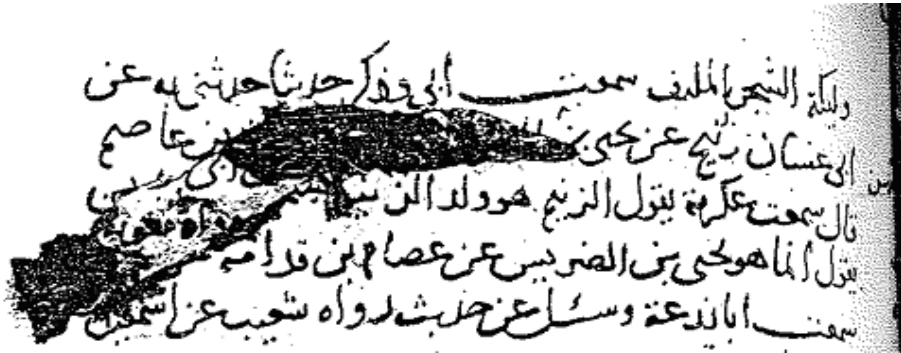 وليكة الشجر الملتف سمعت ابي وذكر حديثا حدثني به عن
ابي غسان زنيج عن يحيى بن عاصم
قال سمعت عكرمة يقول الزنيم هو ولد الزنا
يقول انما هو يحيى بن الضريس عن عصام بن قدامه
سمعت ابا زرعة وسئل عن حديث رواه شعيب عن اسمعيل